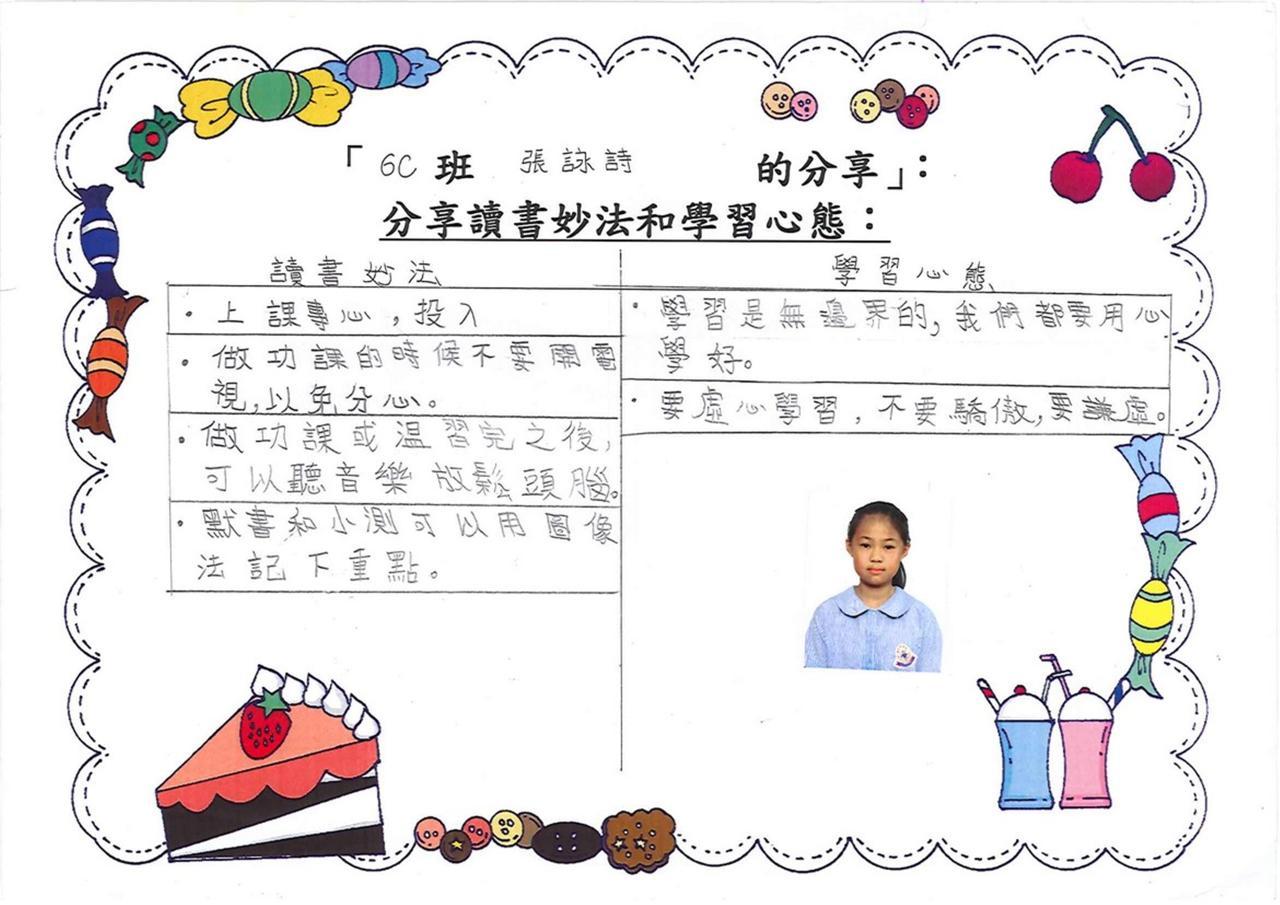 「 6C 班 張詠詩 的分享」：
分享讀書妙法和學習心態：
讀書妙法
・上課專心，投入
・做功課的時候不要開電
視，以免分心。
・做功課或温習完之後，
可以聽音樂放鬆頭腦。
・默書和小測可以用圖像
法記下重點。
學習心態
・學習是無邊界的，我們都要用心
學好。
・要虛心學習，不要驕傲，要謙虛。